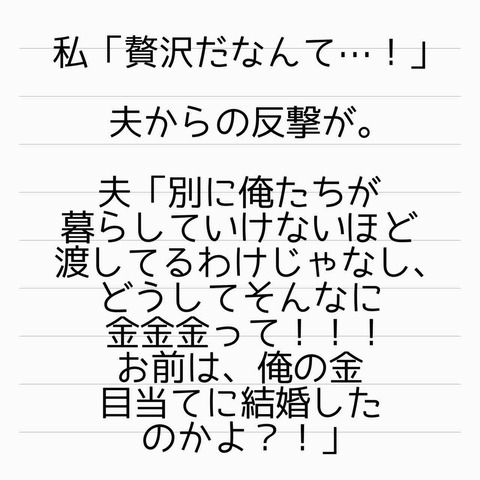 私「贅沢だなんて…！」
夫からの反撃が。
夫「別に俺たちが
暮らしていけないほど
渡してるわけじゃなし、
どうしてそんなに
金金金って！！！
お前は、俺の金
目当てに結婚した
のかよ？！」